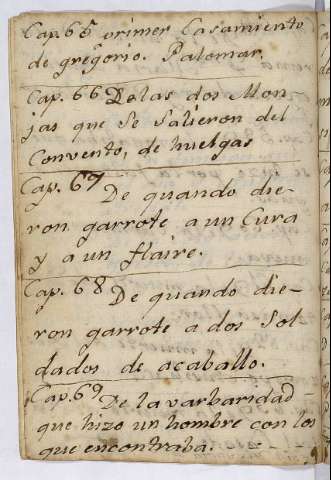 Cap. 65 primer Casamiento
de gregorio. Palomar.
Cap. 66 De las dos Mon
jas que se salieron del
Convento, de huelgas
Cap. 67 De quando die-
ron garrote a un Cura
y a un flaire.
Cap. 68 De quando die-
ron garrote a dos Sol
dados de acaballo.
Cap. 69 De la varbaridad
que hizo un hombre con los
que encontraba.